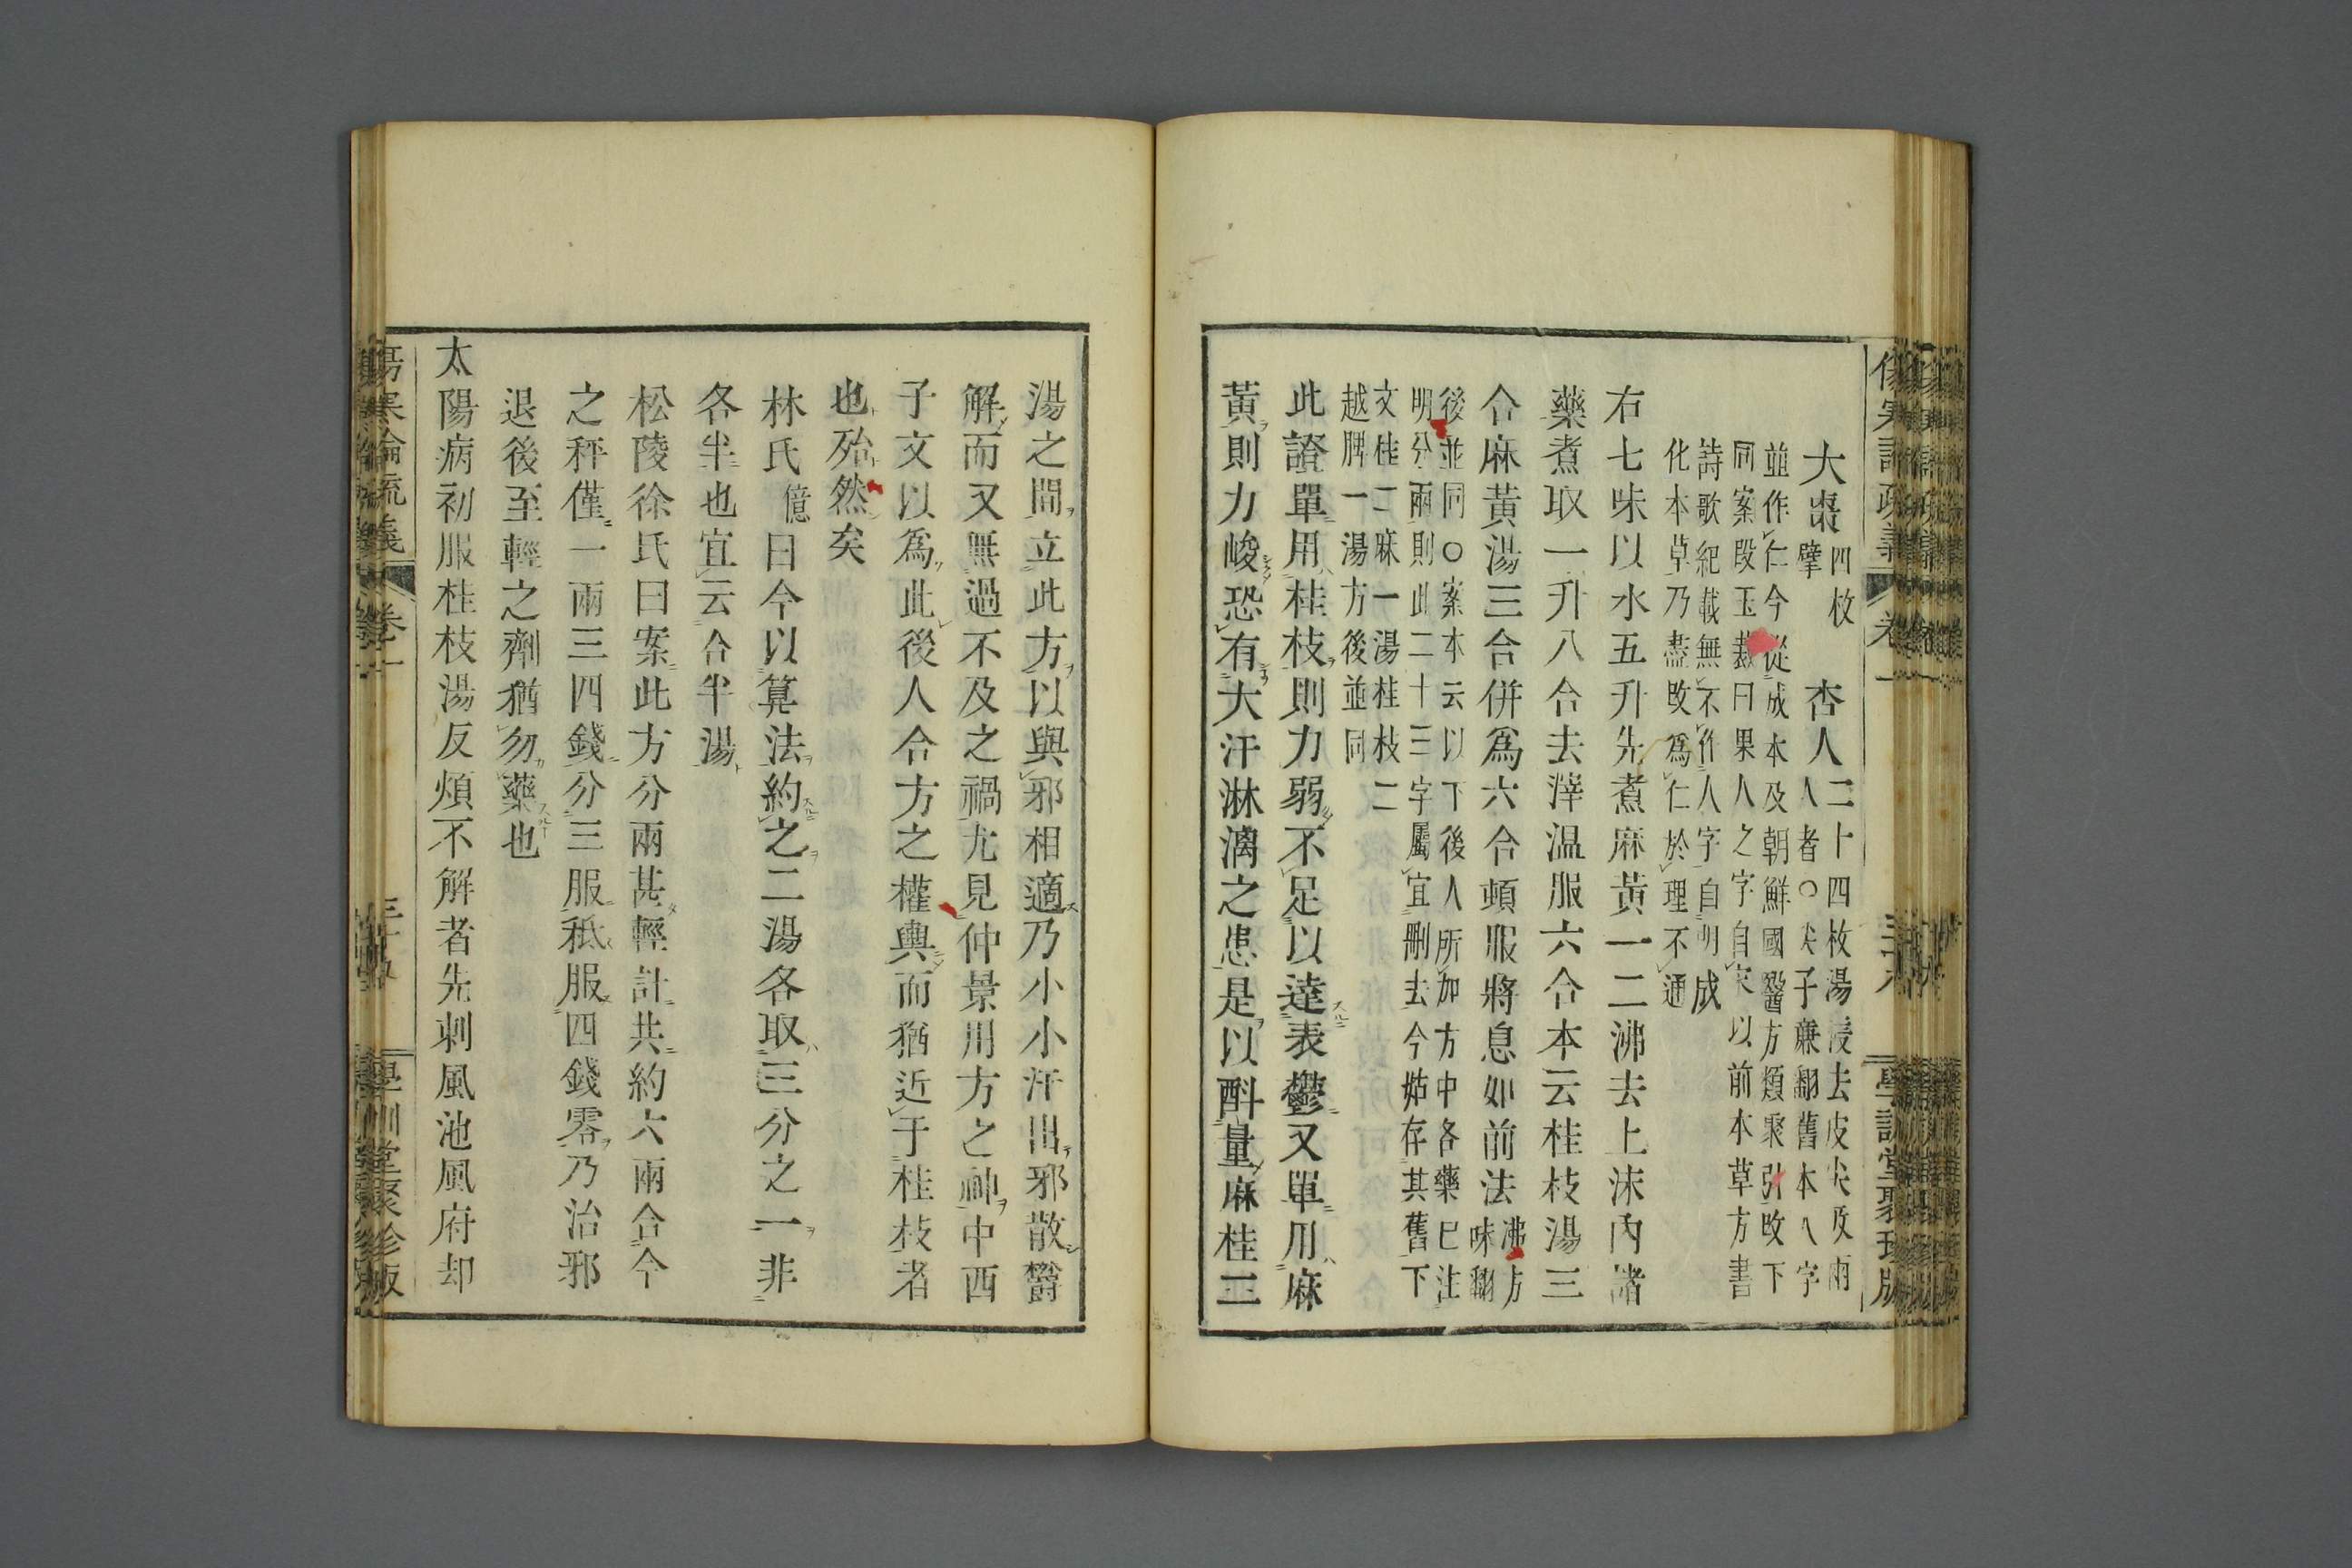 大棗四枚擘 杏人二十四枚湯浸去皮尖及兩
人者○尖子亷翻舊本人字
並作仁今從成本及朝鮮國醫方類聚引改下
同案段玉裁曰果人之字自宋以前本草方書
詩歌紀載無不作人字自明成
化本草乃盡改爲仁於理不通
右七味以水五升先煮麻黃一二沸去上沫內諸
藥煮取一升八合去滓温服六合本云桂枝湯三
合麻黃湯三合併爲六合頓服將息如前法沸方
味翻
後並同○案本云以下後人所加方中各藥已注
明分兩則此二十三字屬宜刪去今姑存其舊下
文桂二麻一湯桂枝二
越脾一湯方後並同
此證單用桂枝則力弱不足以達表鬱又單用麻
黃則力峻恐有大汗淋漓之患是以酙量麻桂三
傷寒論疏義 卷一 學訓堂聚珍版
湯之間立此方以與邪相適乃小小汗出邪散欝
解而又無過不及之禍尤見仲景用方之神中西
子文以爲此後人合方之權輿而猶近于桂枝者
也殆然矣
林氏億曰今以算法約之二湯各取三分之一非
各半也宜云合半湯
松陵徐氏曰案此方分兩甚輕計共約六兩合今
之秤僅一兩三四錢分三服秪服四錢零乃治邪
退後至輕之劑猶勿藥也
太陽病初服桂枝湯反煩不解者先刺風池風府却
傷寒論疏義 卷一 學訓堂聚珍版